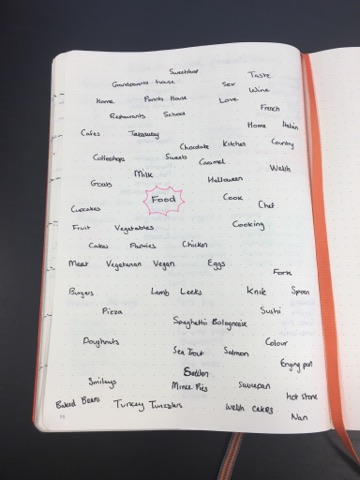 Sweetshop
Taste
Grandparents house
Sex
Wine
Home Parents House
Love
French
Restaurants School
Home Italian
Cafes Takeaway
Chocolate Kitchen Country
Coffeeshops Sweets Caramel
Welsh
Milk
Goats
Halloween
Food
Cook
Chef
Cupcakes
Fruit Vegetables
Cooking
Cakes Chicken
Meat Vegetarian Vegan Eggs
Fork
Burgers Lamb Leeks Knife Spoon
Pizza
Sushi
Spaghetti Bolognaise
Doughnuts
Colour
Sea Trout Salmon
Frying pan
Smileys
Mince Pies
Saucepan
hot stone
Baked Beans Turkey Twizzlers
Welsh Cakes
Nan